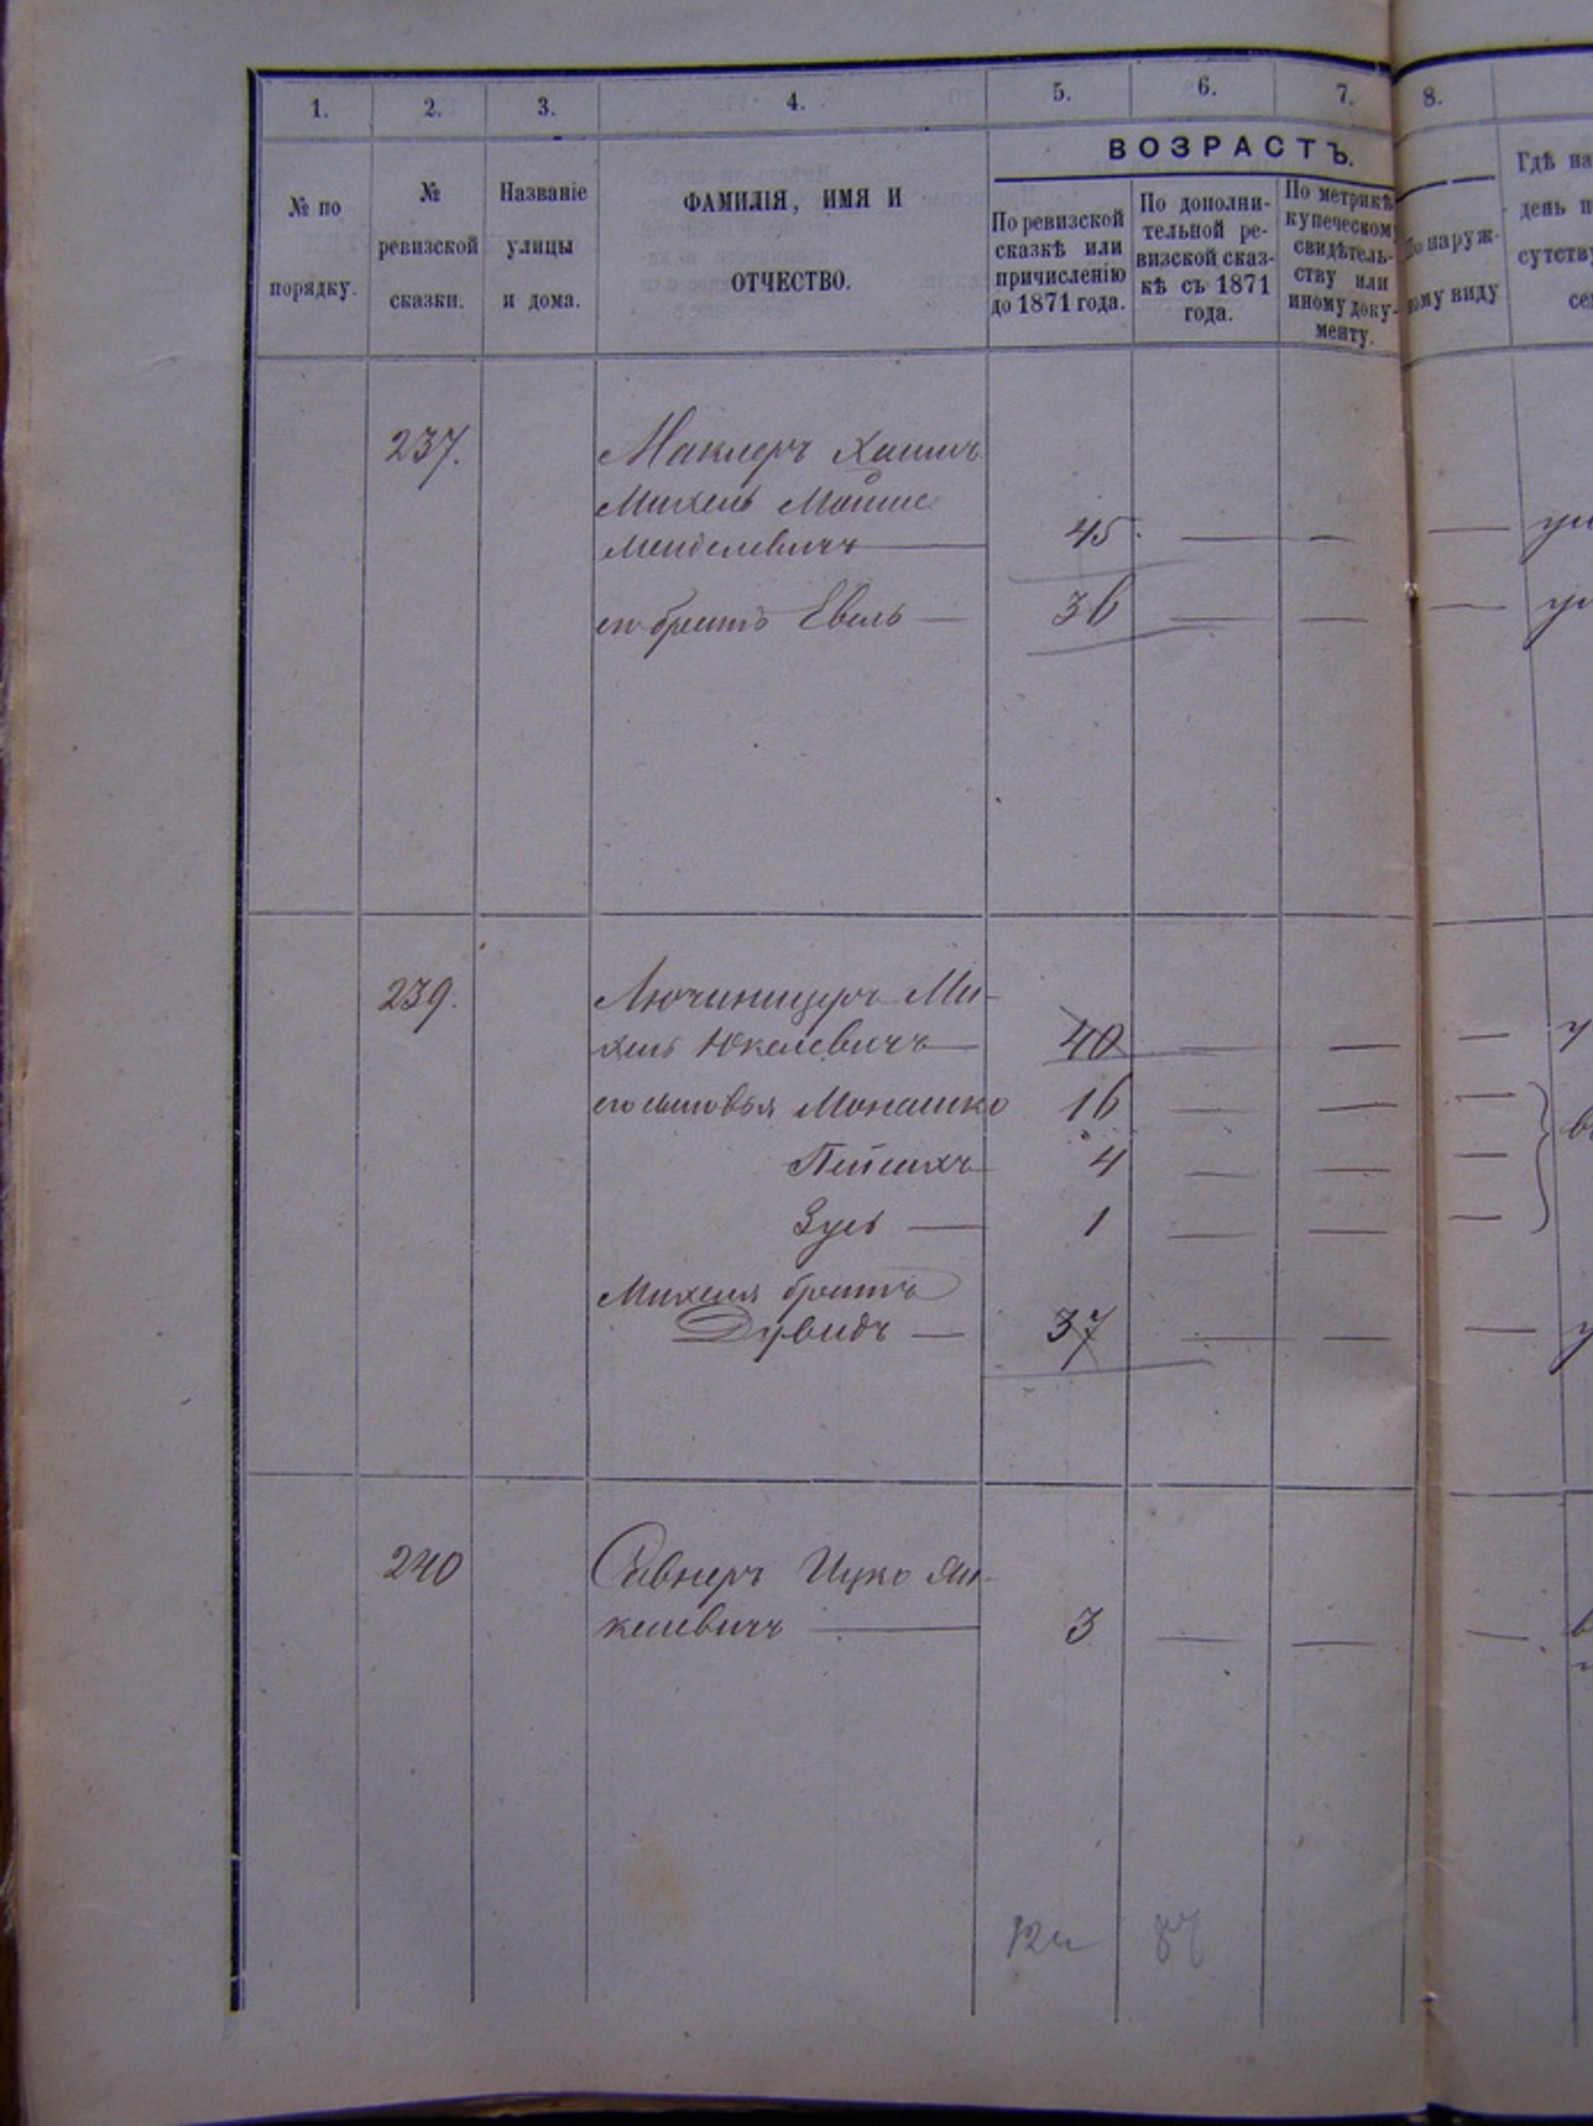 1. 2. 3. 4. 5. 6. 7. 8.
ВОЗРАСТЪ.
№ по
порядку.
№
ревизской
сказки.
Названіе
улицы
и дома.
ФАМИЛІЯ, ИМЯ И
ОТЧЕСТВО.
По ревизской
сказкѣ или
причисленію
до 1871 года.
По дополни-
тельной ре-
визской сказ-
кѣ съ 1871
года.
По метрикѣ
купеческом
свидѣтель-
ству или
иному доку-
менту.
По наруж-
ному виду
Гдѣ на
день п
сутству
сем
237. Маклеръ Хаимъ
Михель Мошке
Менделевичъ — 45 — — —
его братъ Евель — 36 — — —
239. Лючиницеръ Ми-
хель Юкелевичъ — 40 — — —
его сыновья Монашко 16 — — —
Пейсихъ 4 — — —
Зусь — 1 — — —
Михеля братъ
Дувидъ — 37 — — —
240 Савнеръ Ицко Ян-
келевичъ — 3 — — —